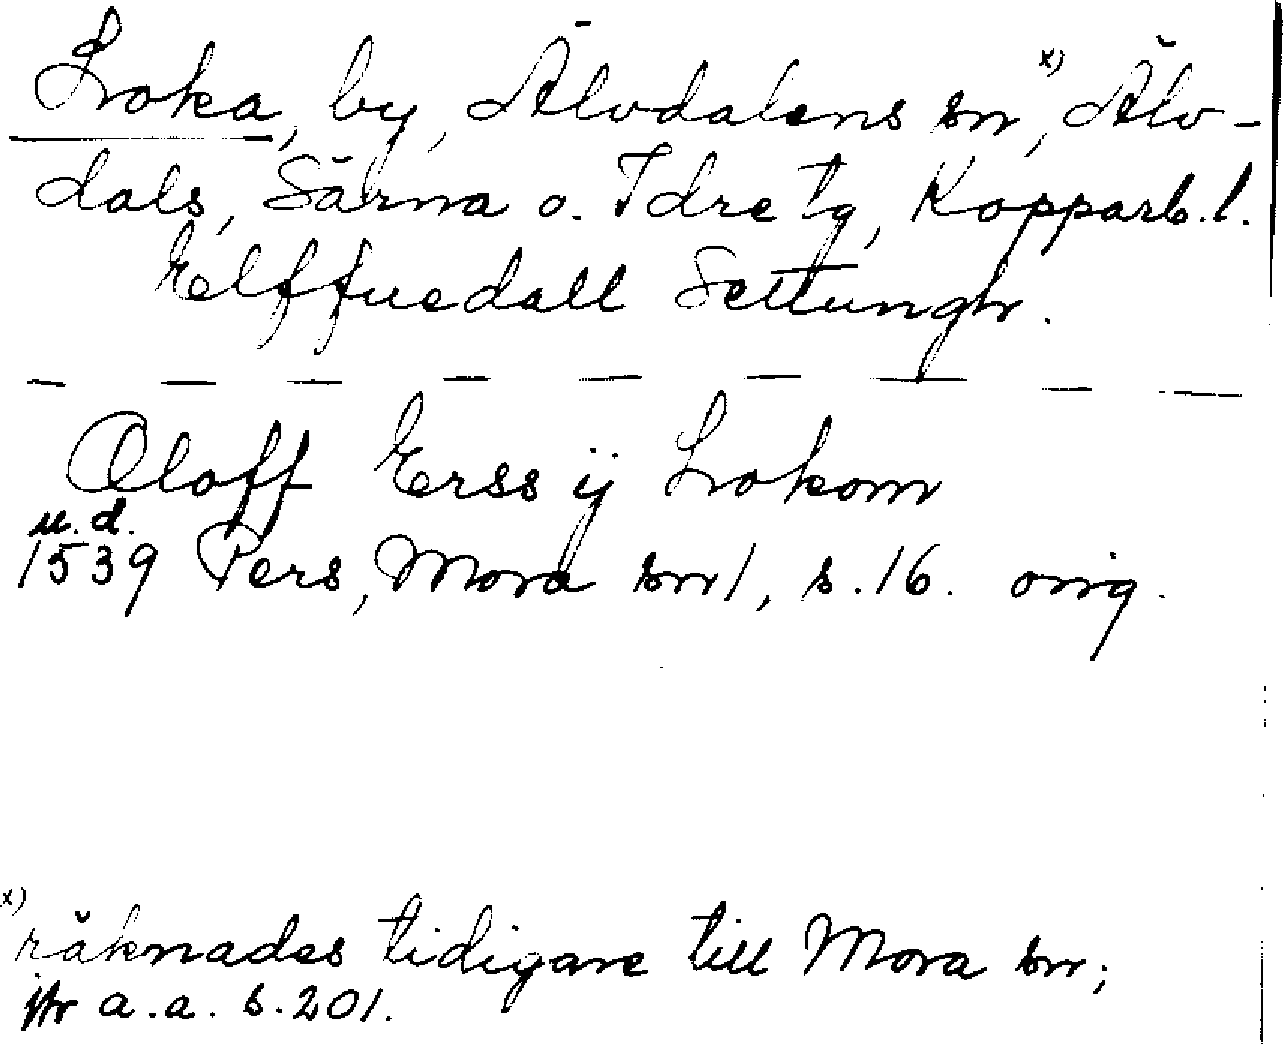 Loka, by, Älvdalens sn, x) Älv-
dals, Särna o. Idre tg, Kopparb. l.
Elffuedall Settungh.
— — — — — — — — —
Oloff Erss ij Lokom
u. d.
1539 Pers, Mora sn 1, s. 16. orig.
x) räknades tidigare till Mora sn;
jfr a. a. s. 201.